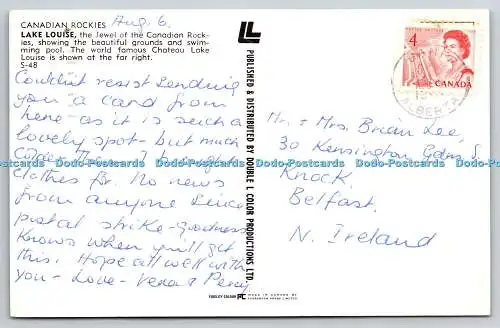 CANADIAN ROCKIES
Aug. 6.
LAKE LOUISE, the Jewel of the Canadian Rock-
ies, showing the beautiful grounds and swim-
ming pool. The world famous Chateau Lake
Louise is shown at the far right.
S-48
Couldn't resist sending
you a card from
here - as it is such a
lovely spot - but much
colder than I brought
clothes for. No news
from anyone since
postal strike - Goodness
knows when you'll get
this. Hope all well with
you - Love - Vera & Percy
LL
PUBLISHED & DISTRIBUTED BY DOUBLE L COLOR PRODUCTIONS LTD.
4
CANADA
ALBERTA
Mr. & Mrs. Brian Lee,
30 Kensington Gdns S.
Knock,
Belfast.
N. Ireland
Dodo-Postcards Dodo-Postcards Dodo-Postcards Dodo-Postcards Dodo-Postcards
MADE IN CANADA BY